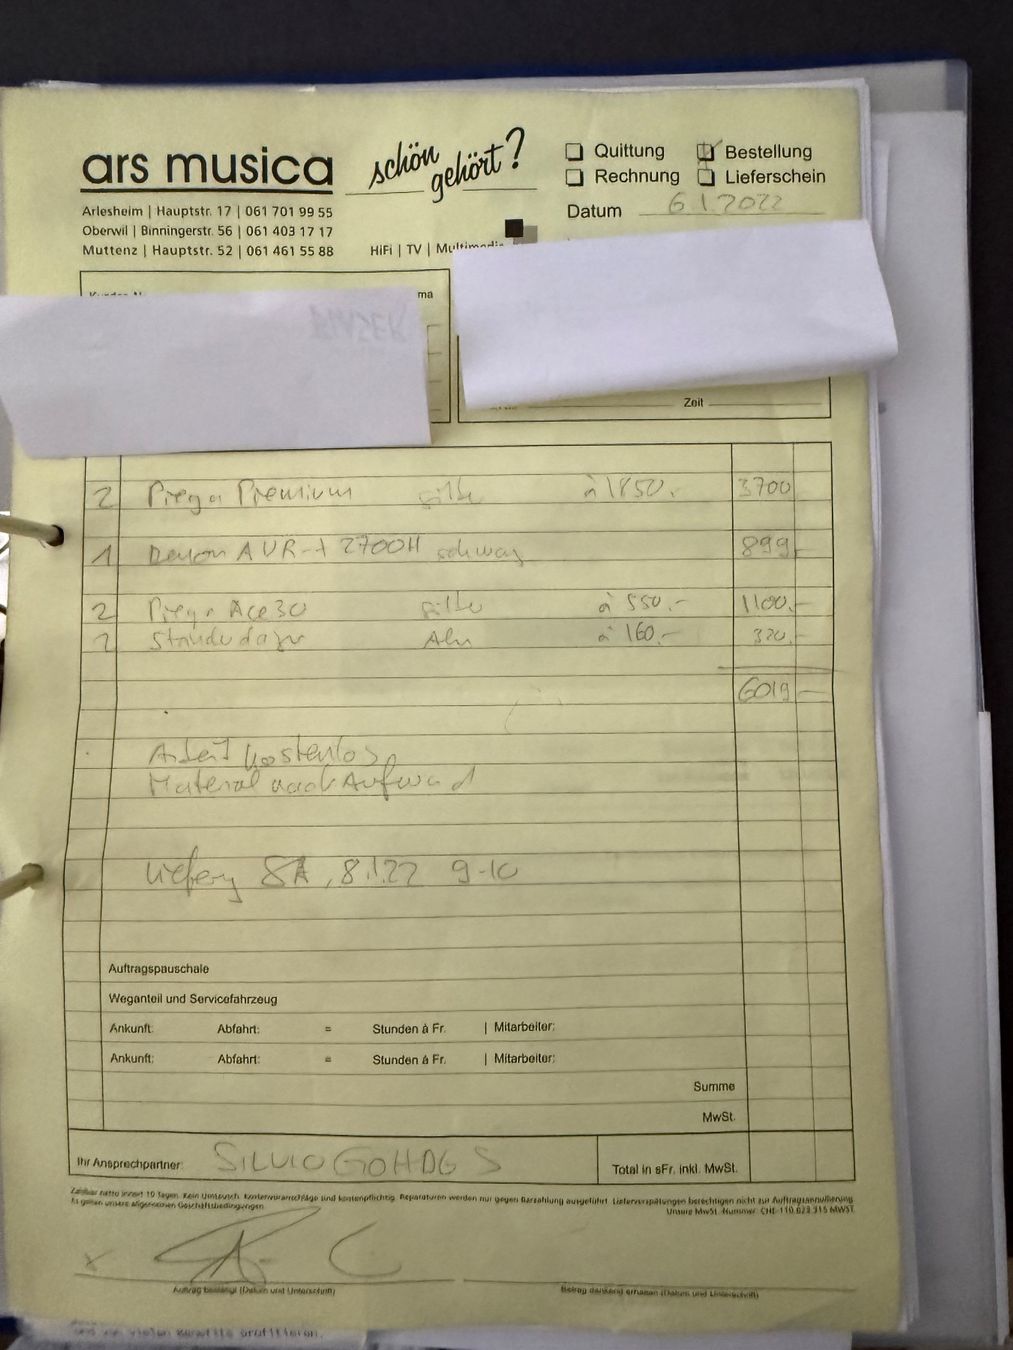 ars musica
schön gehört?
Quittung
Bestellung
Rechnung
Lieferschein
Datum 6.1.2022
Arlesheim | Hauptstr. 17 | 061 701 99 55
Oberwil | Binningerstr. 56 | 061 403 17 17
Muttenz | Hauptstr. 52 | 061 461 55 88
HiFi | TV | Multimedia
Zeit
2 Piega Premium silber à 1850.- 3700
1 Denon AVR-X 2700H schwarz 899.-
2 Piega Ace 30 silber à 550.- 1100.-
2 Ständer dazu Alu à 160.- 320.-
6019.-
Arbeit kostenlos
Material nach Aufwand
Lieferung SA, 8.1.22 9-10
Auftragspauschale
Weganteil und Servicefahrzeug
Ankunft: Abfahrt: = Stunden à Fr. | Mitarbeiter:
Ankunft: Abfahrt: = Stunden à Fr. | Mitarbeiter:
Summe
MwSt.
Ihr Ansprechpartner: SILVIO
Total in sFr. inkl. MwSt.
Zahlbar netto innert 10 Tagen. Kein Umtausch. Kostenvoranschläge sind kostenpflichtig. Reparaturen werden nur gegen Barzahlung ausgeführt. Lieferverspätungen berechtigen nicht zur Auftragsannullierung.
Es gelten unsere allgemeinen Geschäftsbedingungen.
Unsere MwSt. Nummer: CHE-110.023.315 MWST
x
Auftrag bestätigt (Datum und Unterschrift)
Betrag dankend erhalten (Datum und Unterschrift)